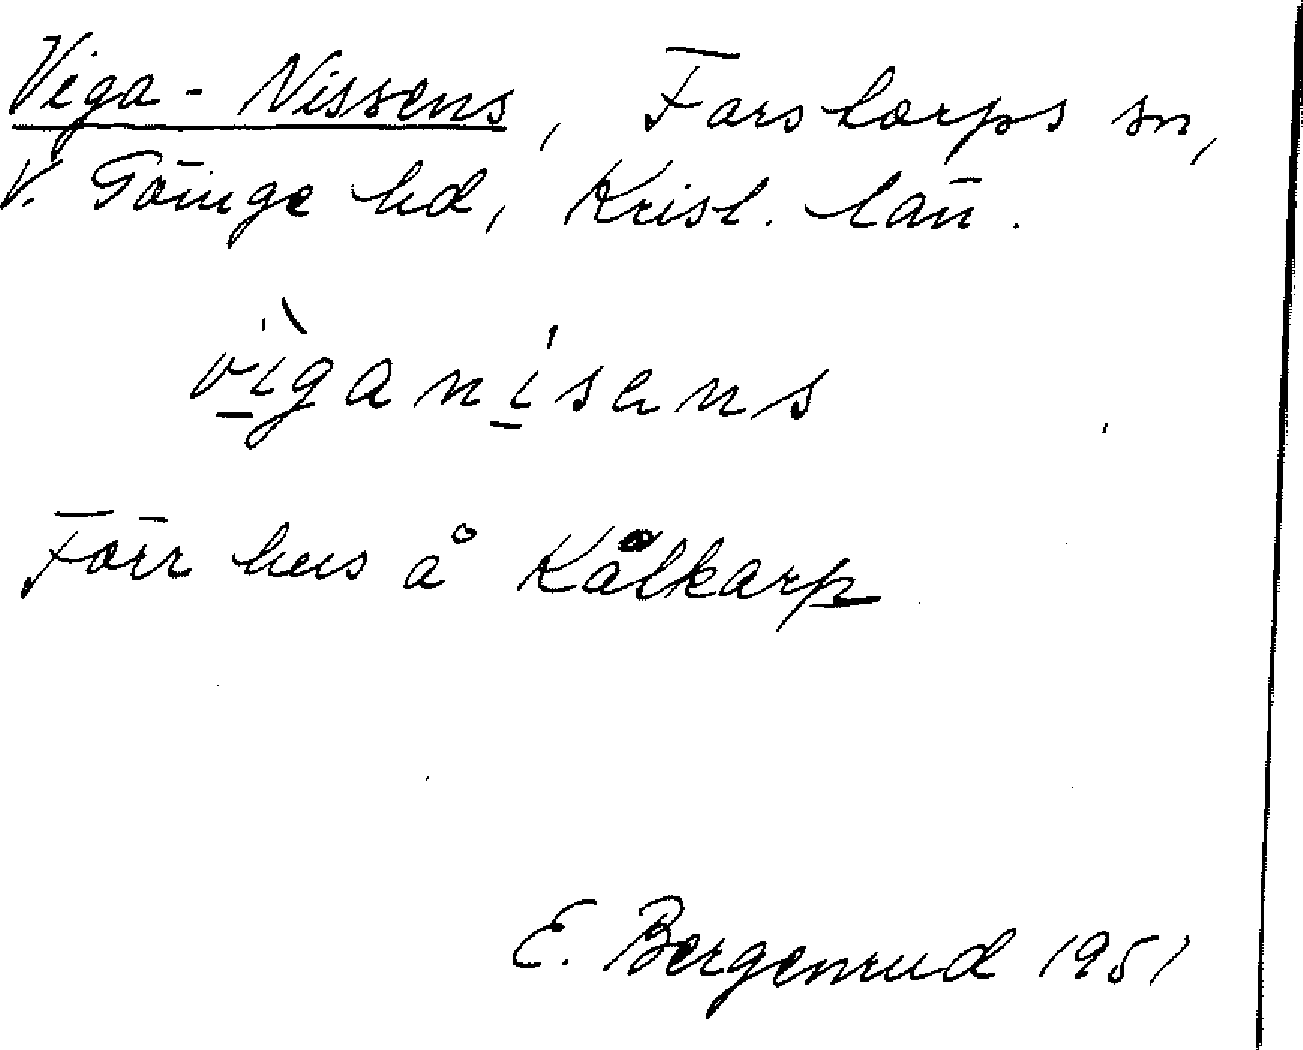 Viga-Nissens, Farstorps sn,
V. Göinge hd, Krist. län.
vi̠ganìsens
Förr hus å Kålkarp
E. Bergenrud 1951